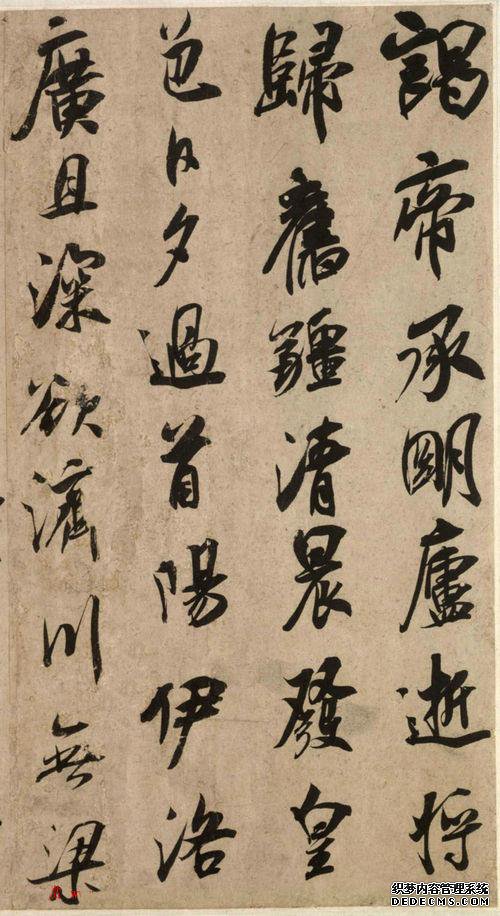 謁帝承明廬逝將
歸舊疆清晨發皇
邑日夕過首陽伊洛
廣且深欲濟川無梁
织梦内容管理系统
DEDECMS.COM